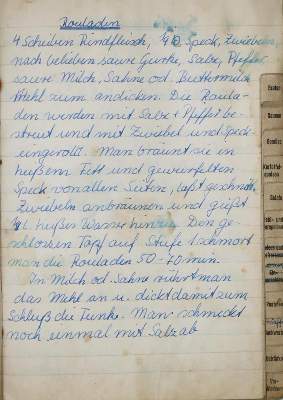 Rouladen
4 Scheiben Rindfleisch, Speck, Zwiebeln,
nach belieben saure Gurke, Salz, Pfeffer
saure Milch, Sahne od. Buttermilch
Mehl zum andicken. Die Roula-
den werden mit Salz + Pfeffer be-
streut und mit Zwiebel und Speck
eingerollt. Man bräunt sie in
heißem Fett und gewürfelten
Speck von allen Seiten, läßt geschnitt.
Zwiebeln anbräunen und gießt
heißes Wasser hinzu. Den ge-
schlossen Topf auf Stufe 1 schmort
man die Rouladen 50-70 min.
In Milch od. Sahne rührt man
das Mehl an u. dickt damit zum
Schluß die Tunke. Man schmeckt
noch einmal mit Salz ab
Saucen
Gemüse
Kartoffel-
Salate